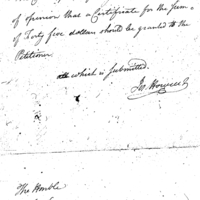 of opinion that a Certificate for the Sum
of Forty five dollars should be granted to the
Petitioner
all which is Submitted.
The Honble